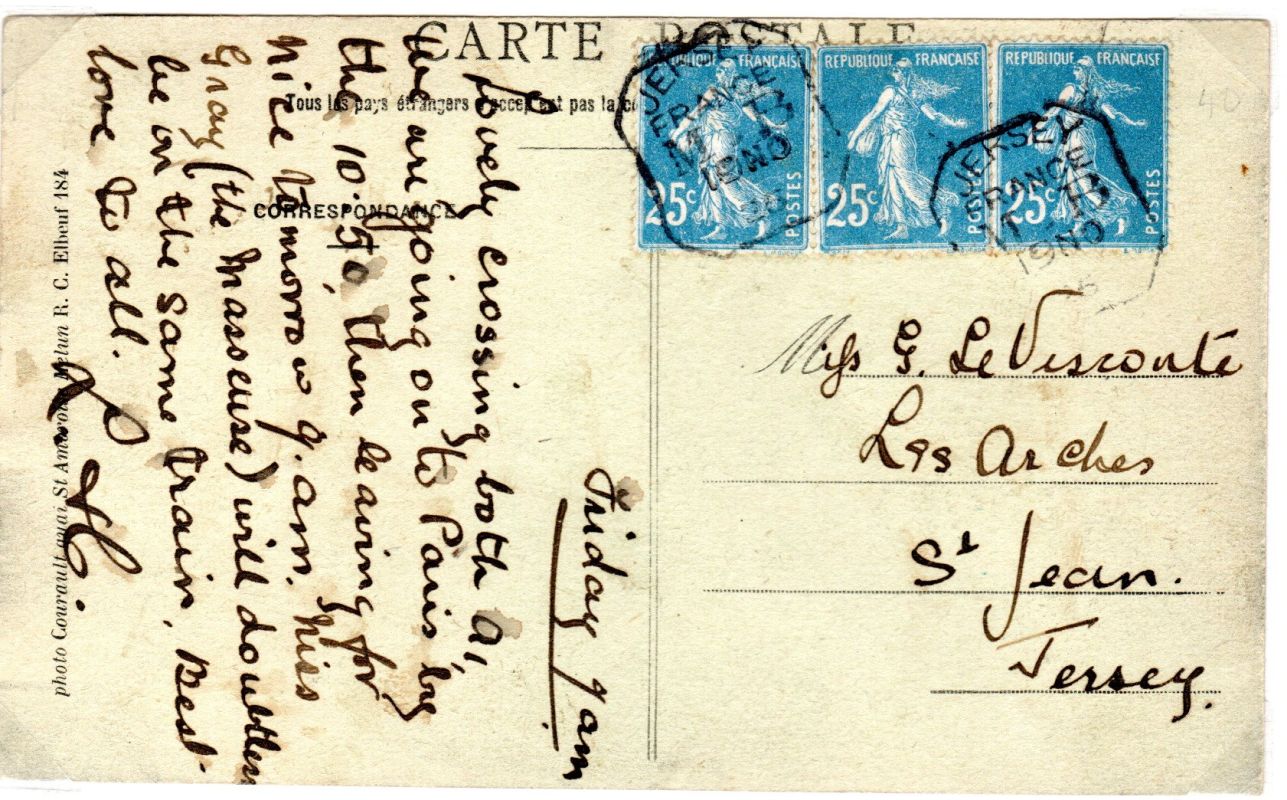 CARTE POSTALE
Tous les pays étrangers n'acceptent pas la
CORRESPONDANCE
Friday 9 am
Lovely crossing both A1,
we are going on to Paris by
the 10.50, then leaving for
Nice tomorrow 9.am. Miss
Gray (the Masseuse) will doubtless
be on the same train. Best
love to all.
photo Courault quai St Ambroise Melun R. C. Elbeuf 184
REPUBLIQUE FRANÇAISE
25c
POSTES
REPUBLIQUE FRANÇAISE
25c
POSTES
REPUBLIQUE FRANÇAISE
25c
POSTES
JERSEY
FRANCE
JERSEY
FRANCE
Miss G. LeVesconte
Les Arches
St Jean.
Jersey.